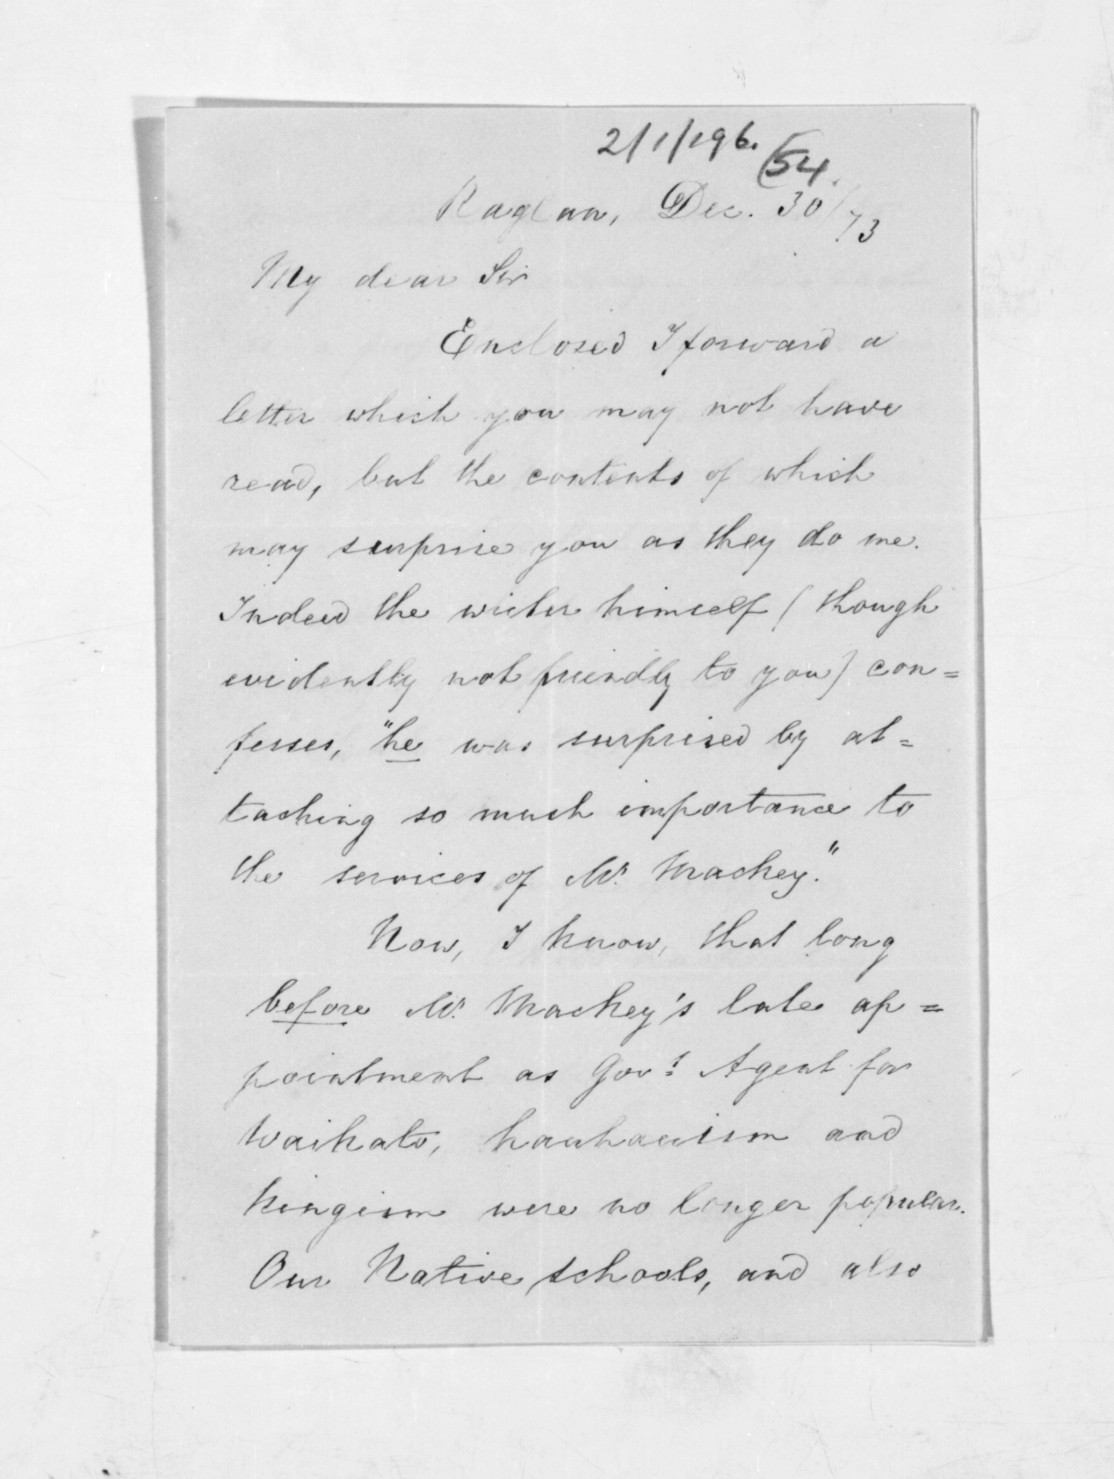 2/1/196.
(54.
Raglan, Dec. 30/73
My dear Sir
Enclosed I forward a
letter which you may not have
read, but the contents of which
may surprise you as they do me.
Indeed the writer himself (though
evidently not friendly to you) con=
fesses, "he was surprised by at=
taching so much importance to
the services of Mr. Mackey."
Now, I know, that long
before Mr. Mackey's late ap=
pointment as Govt. Agent for
Waikato, hauhauism and
kingism were no longer popular.
Our Native schools, and also